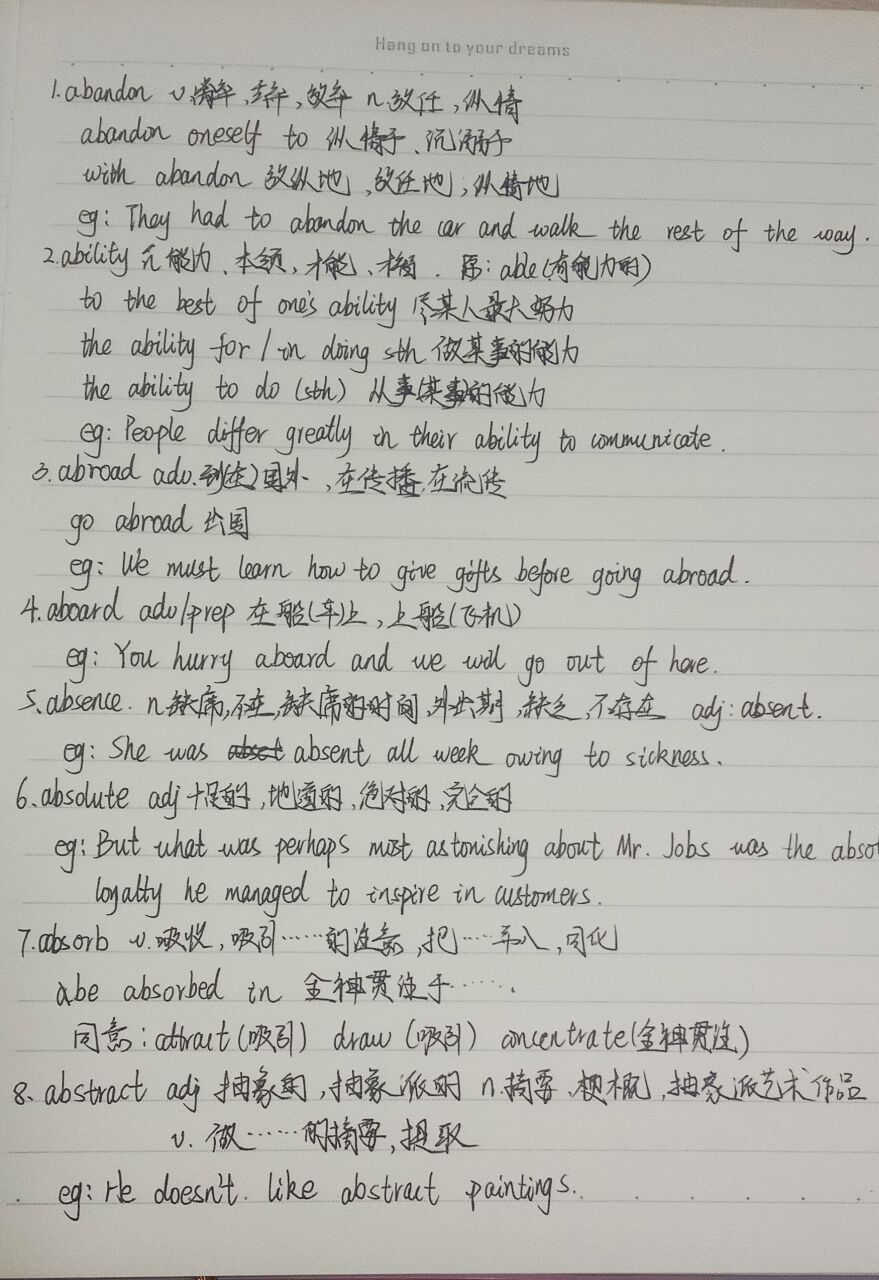 Hang on to your dreams
1.abandon v.离弃,丢弃,放弃 n.放任,纵情
abandon oneself to 纵情于、沉溺于
with abandon 放纵地,放任地,纵情地
eg: They had to abandon the car and walk the rest of the way.
2.ability n.能力、本领,才能、才智. 原: able(有能力的)
to the best of one's ability 尽某人最大努力
the ability for / in doing sth 做某事的能力
the ability to do (sth) 从事(某事)的能力
eg: People differ greatly in their ability to communicate.
3.abroad adv.到(在)国外,在传播,在流传
go abroad 出国
eg: We must learn how to give gifts before going abroad.
4.aboard adv/prep 在船(车)上,上船(飞机)
eg: You hurry aboard and we will go out of here.
5.absence. n.缺席,不在,缺席的时间,外出期,缺乏,不存在 adj: absent.
eg: She was absent all week owing to sickness.
6.absolute adj 十足的,地道的,绝对的,完全的
eg: But what was perhaps most astonishing about Mr. Jobs was the absol
loyalty he managed to inspire in customers.
7.absorb v.吸收,吸引……的注意,把……并入,同化
be absorbed in 全神贯注于…….
同意: attract(吸引) draw (吸引) concentrate(全神贯注)
8、abstract adj 抽象的,抽象派的 n.摘要、梗概,抽象派艺术作品
v. 做……的摘要,提取
eg: He doesn't like abstract paintings.